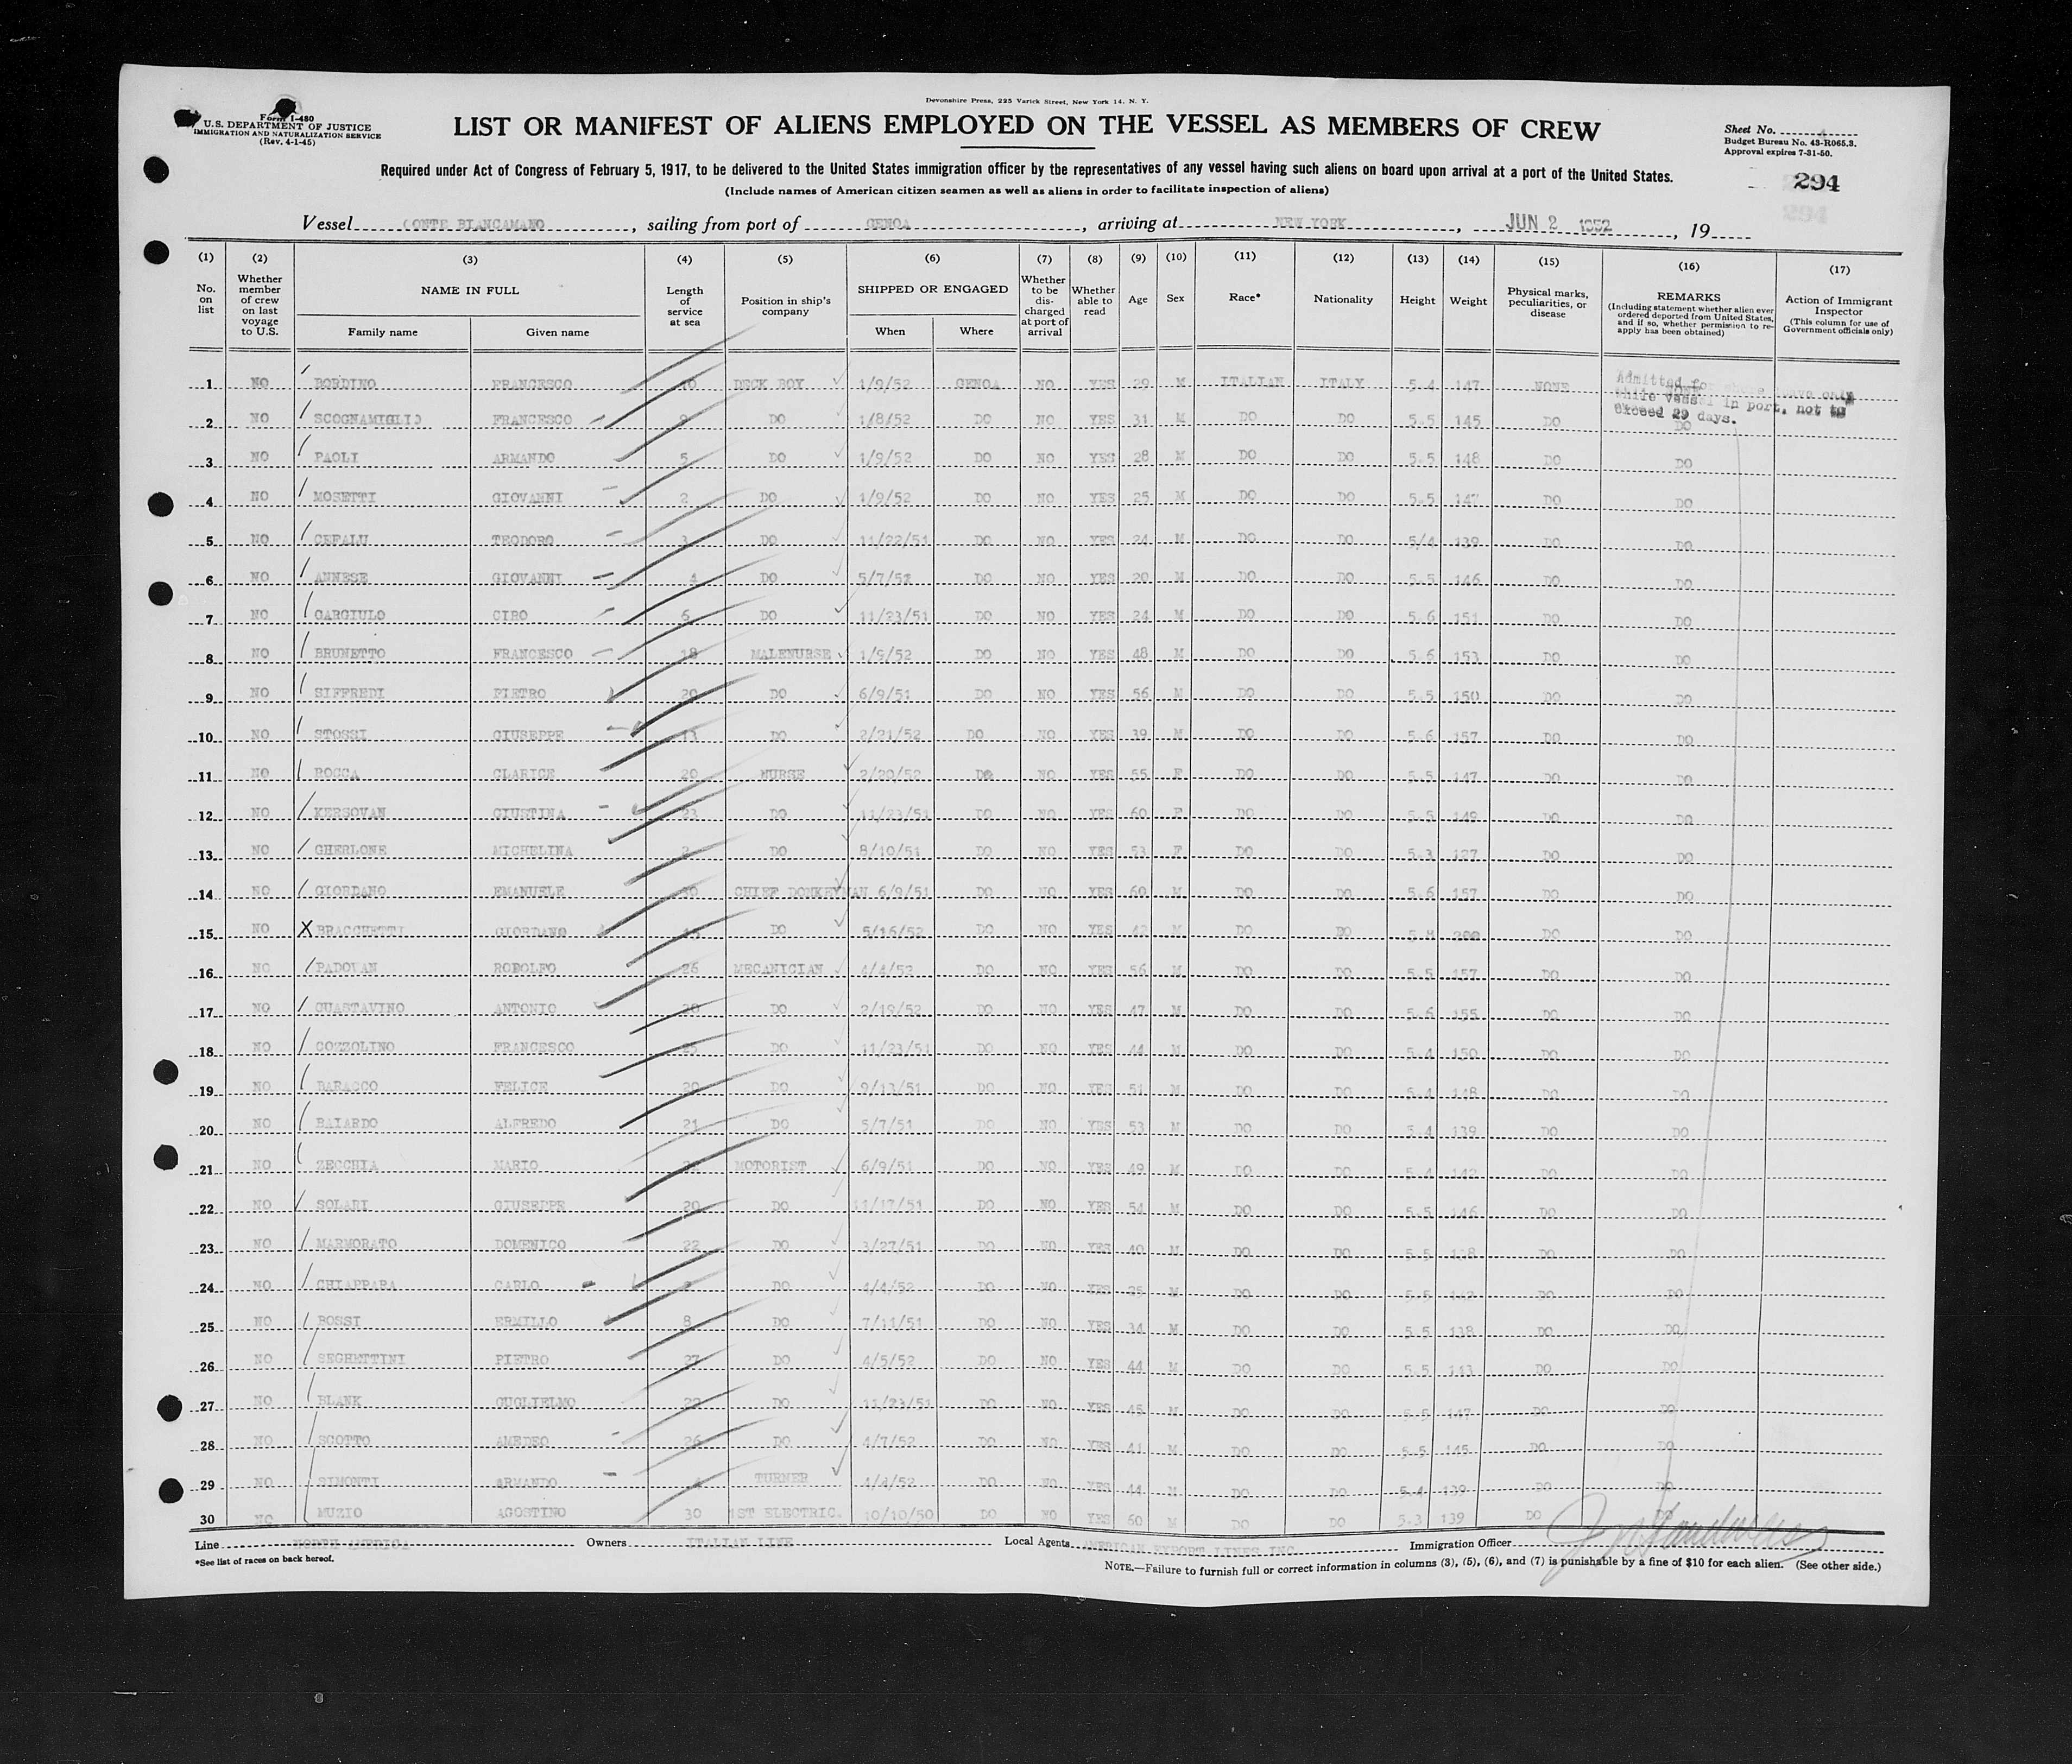 Devonshire Press, 225 Varick Street, New York 14, N. Y.
Form I-480
U.S. DEPARTMENT OF JUSTICE
IMMIGRATION AND NATURALIZATION SERVICE
(Rev. 4-1-45)
LIST OR MANIFEST OF ALIENS EMPLOYED ON THE VESSEL AS MEMBERS OF CREW
Sheet No. 4
Budget Bureau No. 43-R065.3.
Approval expires 7-31-50.
Required under Act of Congress of February 5, 1917, to be delivered to the United States immigration officer by the representatives of any vessel having such aliens on board upon arrival at a port of the United States.
(Include names of American citizen seamen as well as aliens in order to facilitate inspection of aliens)
294
Vessel CONTE BIANCAMANO, sailing from port of GENOA, arriving at NEW YORK, JUN 2 1952, 19
(1) (2) (3) (4) (5) (6) (7) (8) (9) (10) (11) (12) (13) (14) (15) (16) (17)
No. on list
Whether member of crew on last voyage to U.S.
NAME IN FULL
Family name
Given name
Length of service at sea
Position in ship's company
SHIPPED OR ENGAGED
When
Where
Whether to be discharged at port of arrival
Whether able to read
Age
Sex
Race*
Nationality
Height
Weight
Physical marks, peculiarities, or disease
REMARKS
(Including statement whether alien ever ordered deported from United States, and if so, whether permission to reapply has been obtained)
Action of Immigrant Inspector
(This column for use of Government officials only)
Admitted for shore leave only
while vessel in port, not to
exceed 29 days.
1 NO BORDINO FRANCESCO 10 DECK BOY 1/9/52 GENOA NO YES 29 M ITALIAN ITALY 5.4 147 NONE
2 NO SCOGNAMIGLIO FRANCESCO 9 DO 1/8/52 DO NO YES 31 M DO DO 5.5 145 DO DO
3 NO PAOLI ARMANDO 5 DO 1/9/52 DO NO YES 28 M DO DO 5.5 148 DO DO
4 NO MOSETTI GIOVANNI 2 DO 1/9/52 DO NO YES 25 M DO DO 5.5 147 DO DO
5 NO CEFALU TEODORO 3 DO 11/22/51 DO NO YES 24 M DO DO 5/4 139 DO DO
6 NO ANNESE GIOVANNI 4 DO 5/7/52 DO NO YES 20 M DO DO 5.5 146 DO DO
7 NO GARGIULO CIRO 6 DO 11/23/51 DO NO YES 24 M DO DO 5.6 151 DO DO
8 NO BRUNETTO FRANCESCO 18 MALENURSE 1/9/52 DO NO YES 48 M DO DO 5.6 153 DO DO
9 NO SIFFREDI PIETRO 20 DO 6/9/51 DO NO YES 56 M DO DO 5.5 150 DO DO
10 NO STOSSI GIUSEPPE 13 DO 2/21/52 DO NO YES 39 M DO DO 5.6 157 DO DO
11 NO ROCCA CLARICE 20 NURSE 2/20/52 DO NO YES 55 F DO DO 5.5 147 DO DO
12 NO KERSOVAN GIUSTINA 23 DO 11/23/51 DO NO YES 60 F DO DO 5.5 149 DO DO
13 NO GHERLONE MICHELINA 2 DO 8/10/51 DO NO YES 53 F DO DO 5.3 127 DO DO
14 NO GIORDANO EMANUELE 30 CHIEF DONKEYMAN 6/9/51 DO NO YES 60 M DO DO 5.6 157 DO DO
15 NO X BRACCHETTI GIORDANO DO 5/16/52 DO NO YES 42 M DO DO 5.8 200 DO DO
16 NO PADOVAN RODOLFO 26 MECANICIAN 4/4/52 DO NO YES 56 M DO DO 5.5 157 DO DO
17 NO GUASTAVINO ANTONIO 20 DO 2/19/52 DO NO YES 47 M DO DO 5.6 155 DO DO
18 NO COZZOLINO FRANCESCO 25 DO 11/23/51 DO NO YES 44 M DO DO 5.4 150 DO DO
19 NO BARACCO FELICE 20 DO 9/13/51 DO NO YES 51 M DO DO 5.4 148 DO DO
20 NO BAIARDO ALFREDO 21 DO 5/7/51 DO NO YES 53 M DO DO 5.4 139 DO DO
21 NO ZECCHIA MARIO MOTORIST 6/9/51 DO NO YES 49 M DO DO 5.4 142 DO DO
22 NO SOLARI GIUSEPPE 20 DO 11/17/51 DO NO YES 54 M DO DO 5.5 146 DO DO
23 NO MARMORATO DOMENICO 22 DO 3/27/51 DO NO YES 40 M DO DO 5.5 DO DO
24 NO CHIAPPARA CARLO DO 4/4/52 DO NO YES 25 M DO DO 5.5 DO DO
25 NO ROSSI ERMILLO 8 DO 7/11/51 DO NO YES 34 M DO DO 5.5 138 DO DO
26 NO SEGHETTINI PIETRO 27 DO 4/5/52 DO NO YES 44 M DO DO 5.5 143 DO DO
27 NO BLANK GUGLIELMO 22 DO 11/23/51 DO NO YES 45 M DO DO 5.5 147 DO DO
28 NO SCOTTO AMEDEO 26 DO 4/7/52 DO NO YES 41 M DO DO 5.5 145 DO DO
29 NO SIMONTI ARMANDO 4 TURNER 4/4/52 DO NO YES 44 M DO DO 5.4 139 DO DO
30 NO MUZIO AGOSTINO 30 1ST ELECTRIC. 10/10/50 DO NO YES 60 M DO DO 5.3 139 DO DO
Line NORTH AMERICA Owners ITALIAN LINE Local Agents AMERICAN EXPORT LINES INC Immigration Officer
*See list of races on back hereof.
NOTE.—Failure to furnish full or correct information in columns (3), (5), (6), and (7) is punishable by a fine of $10 for each alien. (See other side.)